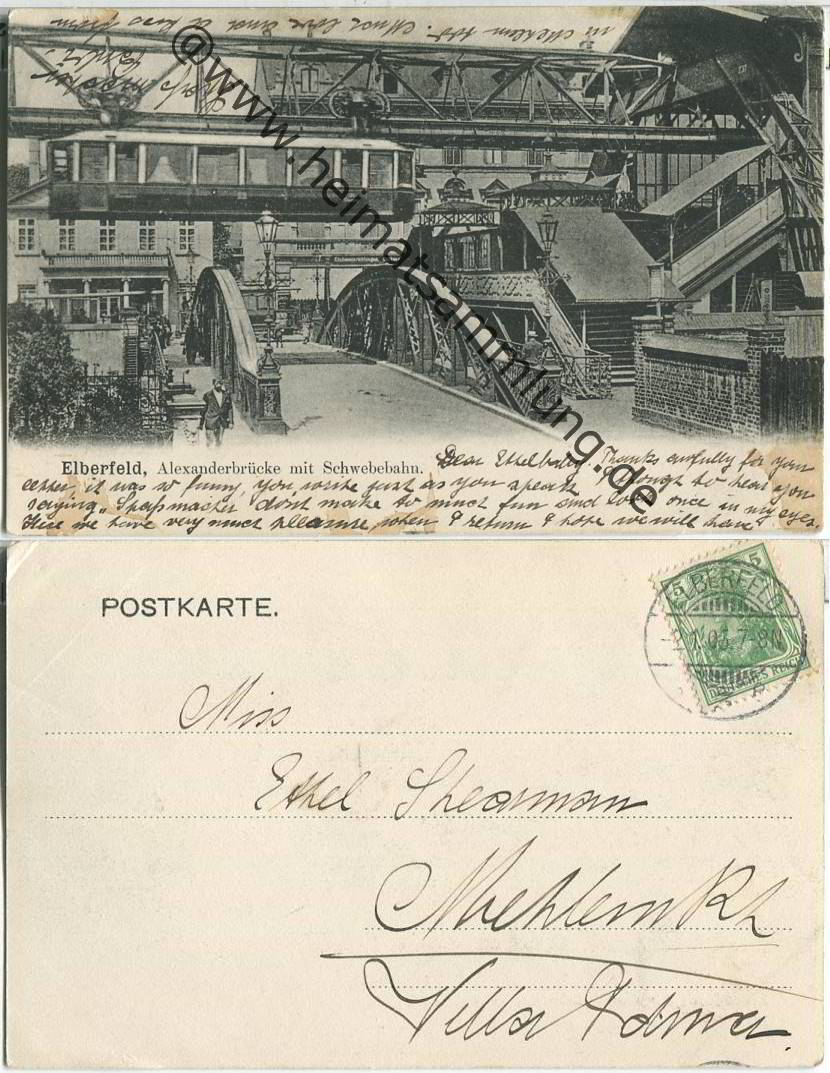 in Mehlem too. Much love and a kiss from
@www.heimatsammlung.de
Elberfeld, Alexanderbrücke mit Schwebebahn. Dear Ethelbaby. Thanks awfully for your
letter, it was so funny, you write just as you speak. I thought to hear you
saying „Spaßmacher" dont make to much fun and look once in my eyes.
Here we have very much pleasure, when I return I hope we will have
POSTKARTE.
5 5
ELBERFELD
7-8N
DEUTSCHES REICH
Miss
Ethel Shearman
Mehlem Rh
Villa